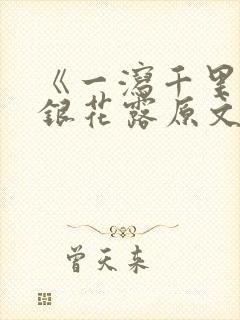 《一泻千里
银花露原文
曾天来